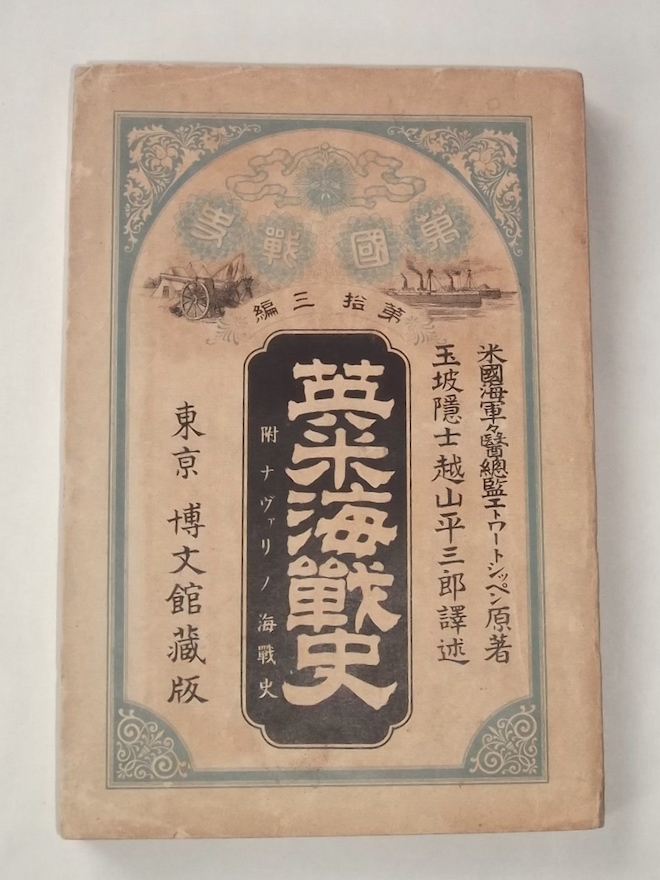 萬國戰史
第拾三編
米國海軍々醫總監エトワートシッペン原著
玉坡隱士越山平三郎譯述
英米海戰史
附ナヴァリノ海戰史
東京 博文館藏版